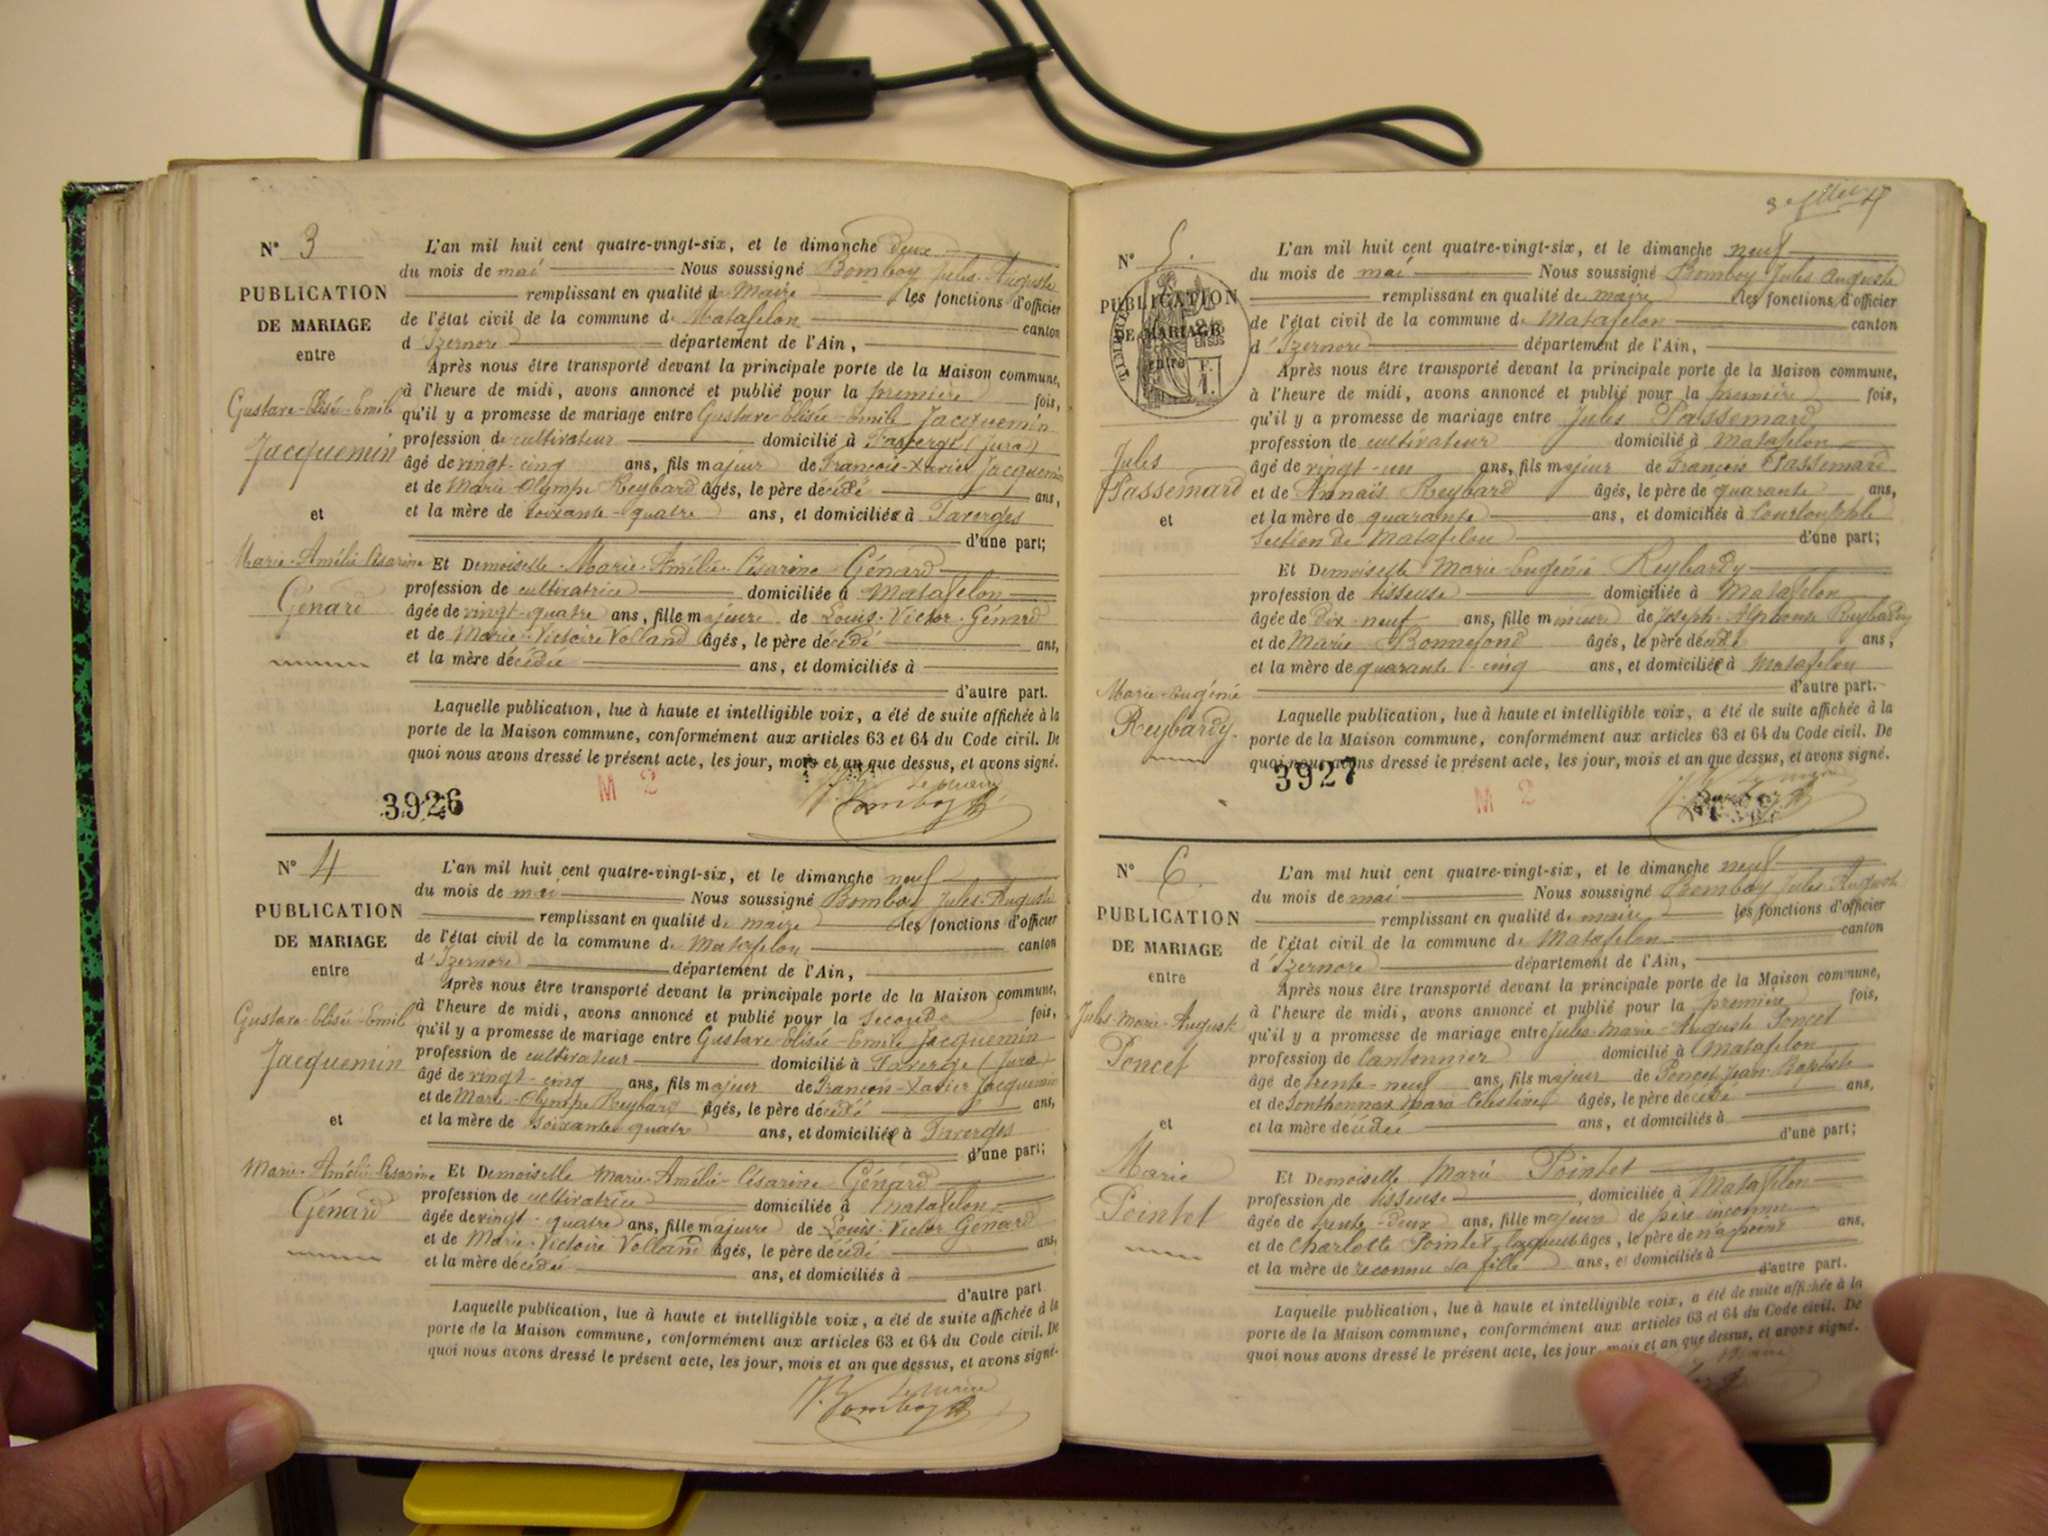 N° 3
PUBLICATION
DE MARIAGE
entre
Gustave-Elisée-Emile
Jacquemin
et
Marie-Amélie Césarine
Génard
L'an mil huit cent quatre-vingt-six, et le dimanche deux
du mois de mai Nous soussigné Bomboy Jules-Auguste
remplissant en qualité de Maire les fonctions d'officier
de l'état civil de la commune de Matafelon canton
d'Izernore département de l'Ain,
Après nous être transporté devant la principale porte de la Maison commune,
à l'heure de midi, avons annoncé et publié pour la première fois,
qu'il y a promesse de mariage entre Gustave-Elisée-Emile Jacquemin
profession de cultivateur domicilié à Faverge (Jura)
âgé de vingt-cinq ans, fils majeur de François-Xavier Jacquemin
et de Marie-Olympe Reybard âgés, le père décédé ans,
et la mère de soixante-quatre ans, et domiciliés à Faverges
d'une part;
Et Demoiselle Marie-Amélie-Césarine Génard
profession de cultivatrice domiciliée à Matafelon
âgée de vingt-quatre ans, fille majeure de Louis-Victor Génard
et de Marie-Victoire Volland âgés, le père décédé ans,
et la mère décédée ans, et domiciliés à
d'autre part.
Laquelle publication, lue à haute et intelligible voix, a été de suite affichée à la
porte de la Maison commune, conformément aux articles 63 et 64 du Code civil. De
quoi nous avons dressé le présent acte, les jour, mois et an que dessus, et avons signé.
Le maire
J. Bomboy
3926
M 2
N° 4
PUBLICATION
DE MARIAGE
entre
Gustave-Elisée-Emile
Jacquemin
et
Marie-Amélie Césarine
Génard
L'an mil huit cent quatre-vingt-six, et le dimanche neuf
du mois de mai Nous soussigné Bomboy Jules-Auguste
remplissant en qualité de maire les fonctions d'officier
de l'état civil de la commune de Matafelon canton
d'Izernore département de l'Ain,
Après nous être transporté devant la principale porte de la Maison commune,
à l'heure de midi, avons annoncé et publié pour la seconde fois,
qu'il y a promesse de mariage entre Gustave Elisée-Emile Jacquemin
profession de cultivateur domicilié à Faverge (Jura)
âgé de vingt-cinq ans, fils majeur de François-Xavier Jacquemin
et de Marie-Olympe Reybard âgés, le père décédé ans,
et la mère de soixante quatre ans, et domiciliés à Faverges
d'une part;
Et Demoiselle Marie-Amélie-Césarine Génard
profession de cultivatrice domiciliée à Matafelon
âgée de vingt-quatre ans, fille majeure de Louis-Victor Génard
et de Marie-Victoire Volland âgés, le père décédé ans,
et la mère décédée ans, et domiciliés à
d'autre part
Laquelle publication, lue à haute et intelligible voix, a été de suite affichée à la
porte de la Maison commune, conformément aux articles 63 et 64 du Code civil. De
quoi nous avons dressé le présent acte, les jour, mois et an que dessus, et avons signé.
Le maire
J. Bomboy
N° 5.
PUBLICATION
DE MARIAGE
entre
Jules
Passemard
et
Marie-Eugénie
Reybardy.
L'an mil huit cent quatre-vingt-six, et le dimanche neuf
du mois de mai Nous soussigné Bomboy Jules Auguste
remplissant en qualité de maire les fonctions d'officier
de l'état civil de la commune de Matafelon canton
d'Izernore département de l'Ain,
Après nous être transporté devant la principale porte de la Maison commune,
à l'heure de midi, avons annoncé et publié pour la première fois,
qu'il y a promesse de mariage entre Jules Passemard
profession de cultivateur domicilié à Matafelon
âgé de vingt-un ans, fils majeur de François Passemard
et de Annaïs Reybard âgés, le père de quarante ans,
et la mère de quarante ans, et domiciliés à
section de Matafelon d'une part;
Et Demoiselle Marie-Eugénie Reybardy
profession de tisseuse domiciliée à Matafelon
âgée de Dix-neuf ans, fille mineure de Joseph-Alphonse Reybardy
et de Marie Bonnefond âgés, le père décédé ans,
et la mère de quarante-cinq ans, et domiciliée à Matafelon
d'autre part.
Laquelle publication, lue à haute et intelligible voix, a été de suite affichée à la
porte de la Maison commune, conformément aux articles 63 et 64 du Code civil. De
quoi nous avons dressé le présent acte, les jour, mois et an que dessus, et avons signé.
Le maire
J. Bomboy
3927
M 2
N° 6.
PUBLICATION
DE MARIAGE
entre
Jules-Marie-Auguste
Poncet
et
Marie
Pointet
L'an mil huit cent quatre-vingt-six, et le dimanche neuf
du mois de mai Nous soussigné Bomboy Jules Auguste
remplissant en qualité de maire les fonctions d'officier
de l'état civil de la commune de Matafelon canton
d'Izernore département de l'Ain,
Après nous être transporté devant la principale porte de la Maison commune,
à l'heure de midi, avons annoncé et publié pour la première fois,
qu'il y a promesse de mariage entre Jules-Marie-Auguste Poncet
profession de Cantonnier domicilié à Matafelon
âgé de trente-neuf ans, fils majeur de Poncet Jean-Baptiste
et de Sonthonnax Marie Célestine âgés, le père décédé ans,
et la mère décédée ans, et domiciliés à
d'une part;
Et Demoiselle Marie Pointet
profession de tisseuse, domiciliée à Matafelon
âgée de trente-deux ans, fille majeure de père inconnu
et de Charlotte Pointet, laquelle âgés, le père de n'a point ans,
et la mère de reconnu sa fille ans, et domiciliés à
d'autre part.
Laquelle publication, lue à haute et intelligible voix, a été de suite affichée à la
porte de la Maison commune, conformément aux articles 63 et 64 du Code civil. De
quoi nous avons dressé le présent acte, les jour, mois et an que dessus, et avons signé.